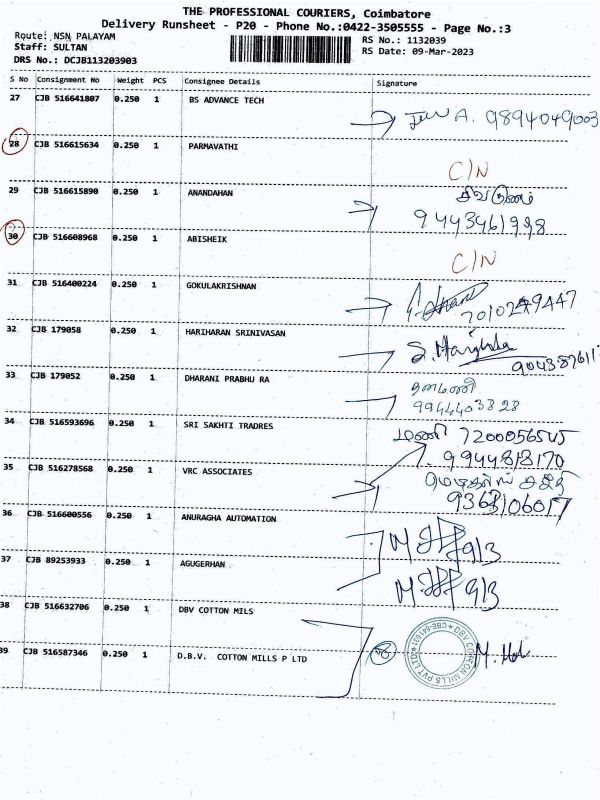 THE PROFESSIONAL COURIERS, Coimbatore
Delivery Runsheet - P20 - Phone No.:0422-3505555 - Page No.:3
Route: NSN PALAYAM RS No.: 1132039
Staff: SULTAN RS Date: 09-Mar-2023
DRS No.: DCJB113203903
S No Consignment No Weight PCS Consignee Details Signature
27 CJB 516641807 0.250 1 BS ADVANCE TECH
A. 9894049003
28 CJB 516615634 0.250 1 PARMAVATHI
C/N
29 CJB 516615890 0.250 1 ANANDAHAN
9443461998
30 CJB 516608968 0.250 1 ABISHEIK
C/N
31 CJB 516400224 0.250 1 GOKULAKRISHNAN
32 CJB 179058 0.250 1 HARIHARAN SRINIVASAN
S.
33 CJB 179052 0.250 1 DHARANI PRABHU RA
9944403828
34 CJB 516593696 0.250 1 SRI SAKHTI TRADRES
மணி 7200056545
9944818170
35 CJB 516278568 0.250 1 VRC ASSOCIATES
9363106017
36 CJB 516600556 0.250 1 ANURAGHA AUTOMATION
9/3
37 CJB 89253933 0.250 1 AGUGERHAN
9/3
38 CJB 516632706 0.250 1 DBV COTTON MILS
39 CJB 516587346 0.250 1 D.B.V. COTTON MILLS P LTD
DBV COTTON MILLS PVT LTD